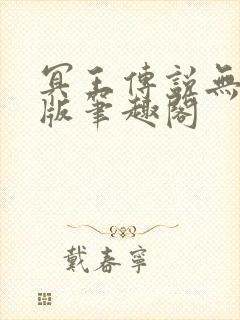 冥王傳說無
版筆趣閣
戴春寧